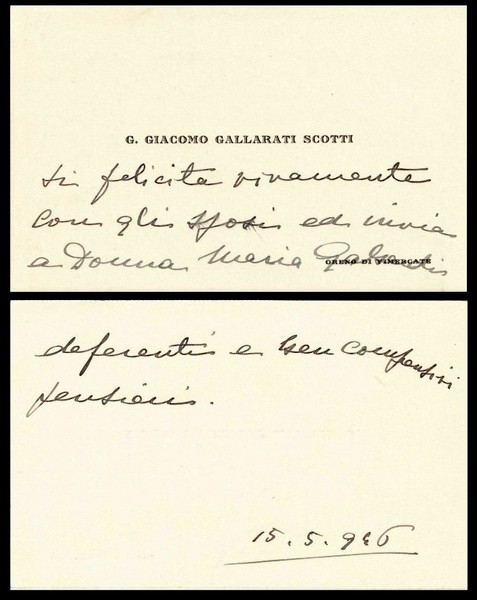 G. GIACOMO GALLARATI SCOTTI
si felicita vivamente
con gli sposi ed invia
a Donna Maria
ORENO DI VIMERCATE
deferenti e ben comprensivi
pensieri.
15.5.946